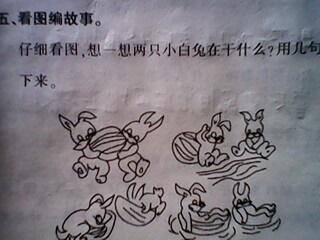 五、看图编故事。
仔细看图,想一想两只小白兔在干什么?用几句
下来。